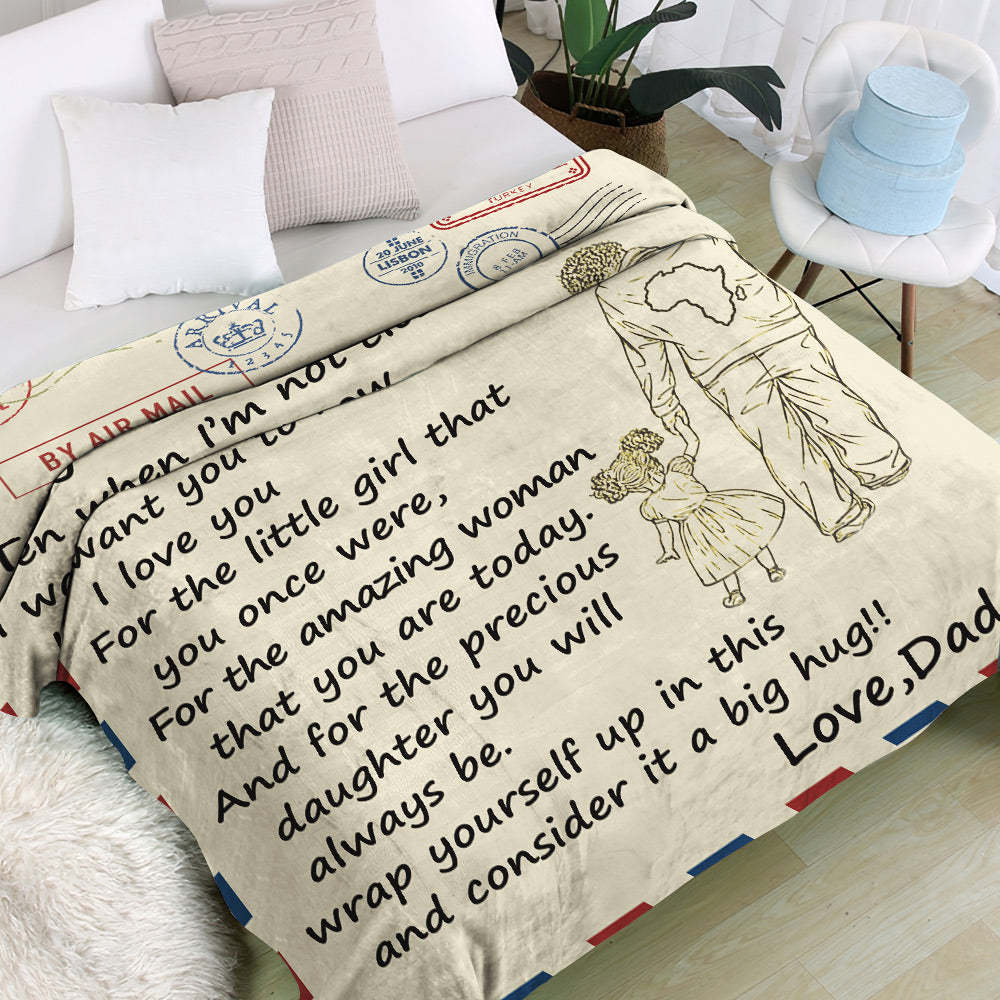 TURKEY
20 JUNE
LISBON
2010
IMMIGRATION
8 FEB
ARRIVAL
1 2 3 4 5
BY AIR MAIL
when I'm not
want you to
I love you
For the little girl that
you once were,
For the amazing woman
that you are today.
And for the precious
daughter you will
always be.
wrap yourself up in this
and consider it a big hug!!
Love,Dad